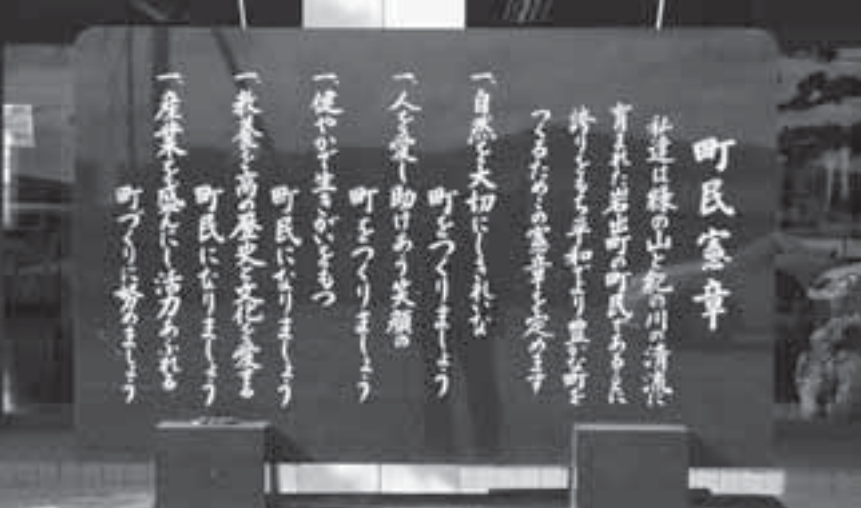 町民憲章
私達は緑の山と紀の川の清流に
育まれた岩出町の町民であることに
誇りをもち平和でより豊かな町を
つくるためこの憲章を定めます
一、自然を大切にしきれいな
町をつくりましょう
一、人を愛し助けあう笑顔の
町をつくりましょう
一、健やかで生きがいをもつ
町民になりましょう
一、教養を高め歴史と文化を愛する
町民になりましょう
一、産業を盛んにし活力あふれる
町づくりに努めましょう